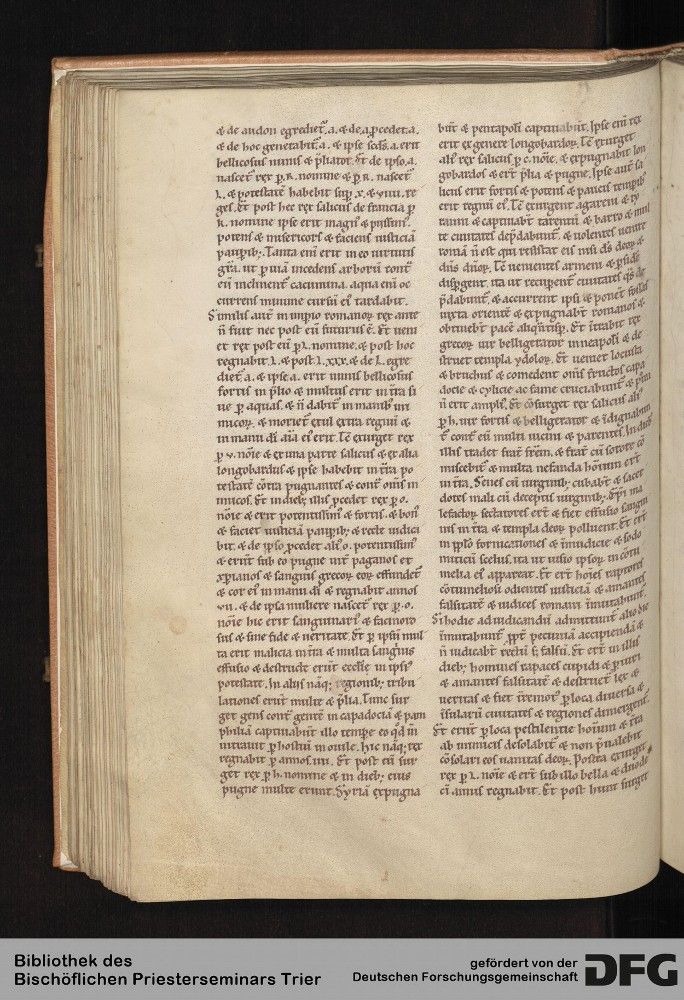 & de audon egrediet̃ .a. & de .a. pcedet .a.
& de hoc genetabit̃ .a. & ipse scd̃s .a. erit
bellicosus nimis & p̃liator. Et de ipso .a.
nascet̃ rex p̲ .R. nomine & p̲ .R. nascet̃
.L. & potestatẽ habebit sup̲ .x. & viiii. re
ges. Et post hec rex salicus de francia p̲
.k. nomine ipse erit magn' & piissim'
potens & misericors & faciens iusticiã
paup̲ib;. Tanta eni erit in eo uirtutis
gr̃a. ut p̲ uiã incedens arborũ cont̃
eũ inclinent̃ cacumina. aqua eni oc
currens minime cursũ ei' tardabit.
Similis aut̃ in imp̲io romanoꝝ rex ante
ñ fuit nec post eũ futurus ẽ. Et ueni
et rex post eũ p̲ .L. nomine. & post hoc
regnabit .L. & post .L. xxx. & de .L. egre
diet̃ .a. & ipse .a. erit nimis bellicosus
fortis in p̃lio & multus erit in t̃ra si
ue p̲ aquas. & ñ dabit̃ in manib' ini
micoꝝ. & moriet̃ exul extra regnũ &
in manu dı̃ aı̃a ei' erit. Tẽ exurget rex
p̲ .v. nõie & ex una parte salicus & ex alia
longobardus & ipse habebit in t̃ra po
testatẽ cõtra pugnantes & cont̃ om̃s in
imicos. Et in dieb; illis pcedet rex p̲ .o.
nõie & erit potentissim' & fortis. & bon'
& faciet iusticiã paup̲ib; & recte iudica
bit. & de ipso pcedet ali' .o. potentissim'
& erũt sub eo pugne int̃ paganos et
xp̃ianos & sanguis grecoꝝ eoꝝ effundet̃
& cor ei' in manu dı̃ & regnabit annos
.vii. & de ipsa muliere nascet̃ rex p̲ .o.
nõie hic erit sanguinari' & facinoro
sus & sine fide & ueritate. Et p̲ ipsũ mul
ta erit malicia in t̃ra & multa sangı̃nis
effusio & destructe erũt eccl̃ie in ipsi'
potestate. In aliis nãq; regionib; tribu
lationes erũt multe & p̃lia. Tunc sur
get gens cont̃ gentẽ in capadociã & pam
philiã captiuabũt illo temp̲e eo qd̃ in
intrauit p̲ hostiũ in ouile. hic nãq; rex
regnabit p̲ annos .iiii. Et post eũ sur
get rex p̲ .h. nomine & in dieb; eius
pugne multe erunt. Syriã expugna
bũt & pentapolı̃ captiuabũt. Ipse eni rex
erit ex genere longobardoꝝ. Tẽ exurget
ali' rex salicus p̲ .c. nõie. & expugnabit lon
gobardos & erit p̃lia & pugne. Ipse aut̃ sa
licus erit fortis & potens & paucis temp̲ib'
erit regnũ ei'. Tẽ exurgent agareni & ty
ranni & captiuabt̃ tarentũ & barro & mul
te ciuitates dep̃dabunt̃. & uolentes uenire
romã ñ est qui resistat eis nisi ds̃ deoꝝ &
dñs dñoꝝ. Tẽ uenientes armeni & p̲sidẽ
disp̲gent. ita ut recup̲ent̃ ciuitates q̃s de
p̃dabunt̃. & accurrent ipsi & ponet̃ fossas
iuxta orientẽ & expugnabt̃ romanos &
obtinebt̃ pacẽ aliq̃ntisp̲. Et intrabit rex
grecoꝝ uir belligerator in neapolı̃ & de
struet templa ydoloꝝ. Et ueniet locusta
& bruchus & comedent om̃s fructos capa
docie & cylicie ac fame cruciabunt̃ & p̃tea
ñ erit ampli'. Et cõsurget rex salicus ali'
p̲ .h. uir fortis & belligerator & ı̃dignabun
t̃ cont̃ eũ multi uicini & parentes. In dieb'
illis tradet frat̃ frẽm. & frat̃ cũ sorore cõ
miscebit̃ & multa nefanda hoı̃um ert̃
in t̃ra. Senes cũ uirginib; cubabt̃ & sacer
dotes mali cũ deceptis uirginib;. Ep̃i ma
lefactoꝝ sectatores ert̃ & fiet effusio sangui
nis in t̃ra & templa deoꝝ polluent̃. Et ert̃
in pp̃lo fornicationes & ı̃mundicie & sodo
miticũ scelus. ita ut uisio ipsoꝝ in cõtu
melia ei' appareat. Et ert̃ hoı̃es raptores
cõtumeliosi odientes iusticiã & amantes
falsitatẽ & iudices romani ı̃mutabunt̃.
Si hodie ad iudicandũ admittunt̃ alio die
ı̃mutabunt̃ ppt̃ pecuniã accipiendã &
ñ iudicabt̃ rectũ s; falsũ. Et ert̃ in illis
dieb; homines rapaces cupidi & p̲iuri
& amantes falsitatẽ & destruet̃ lex &
ueritas & fiet t̃remot' p̲ loca diuersa &
ı̃sularũ ciuitates & regiones dimergent̃.
Et erũt p̲ loca pestilentie hoı̃um & t̃ra
ab inimicis desolabit̃ & non p̃ualebit
cõsolari eos uanitas deoꝝ. Postea exurget
rex p̲ .L. nõie & ert̃ sub illo bella & duode
cı̃ annis regnabit. Et post hunc surget
Bibliothek des
Bischöflichen Priesterseminars Trier
gefördert von der
Deutschen Forschungsgemeinschaft
DFG